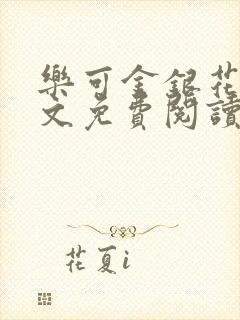 樂可金銀花
文免費閱讀
花夏i